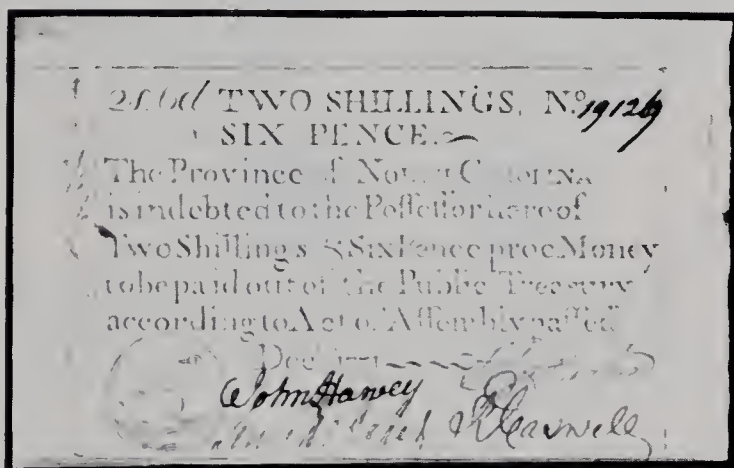 2s.6d TWO SHILLINGS, No. 19129
SIX PENCE.
The Province of North Carolina
is indebted to the Poſſeſſor hereof
Two Shillings & Six Pence proc. Money
to be paid out of the Public Treaſury
according to Act of Aſſembly paſſed
John Harvey
R Caswell